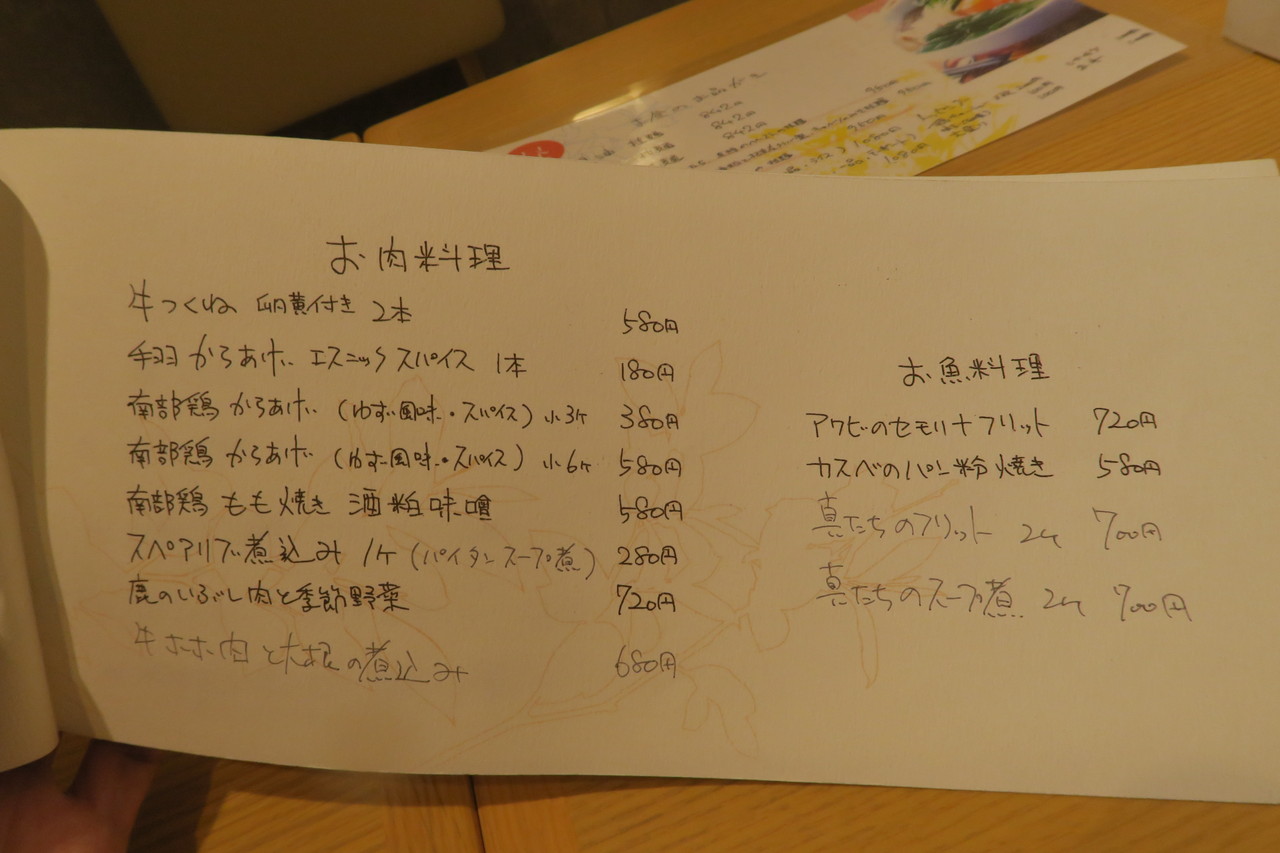 お肉料理
牛つくね 卵黄付き 2本 580円
手羽からあげ エスニックスパイス 1本 180円
南部鶏 からあげ (ゆず風味・スパイス) 小3ヶ 380円
南部鶏 からあげ (ゆず風味・スパイス) 小6ヶ 580円
南部鶏 もも焼き 酒粕味噌 580円
スペアリブ煮込み 1ヶ (パイタンスープ煮) 280円
鹿のいぶし肉と季節野菜 720円
牛ホホ肉と大根の煮込み 680円
お魚料理
アワビのセモリナフリット 720円
カスベのパン粉焼き 580円
真たちのフリット 2ヶ 700円
真たちのスープ煮 2ヶ 700円
842円
842円
842円